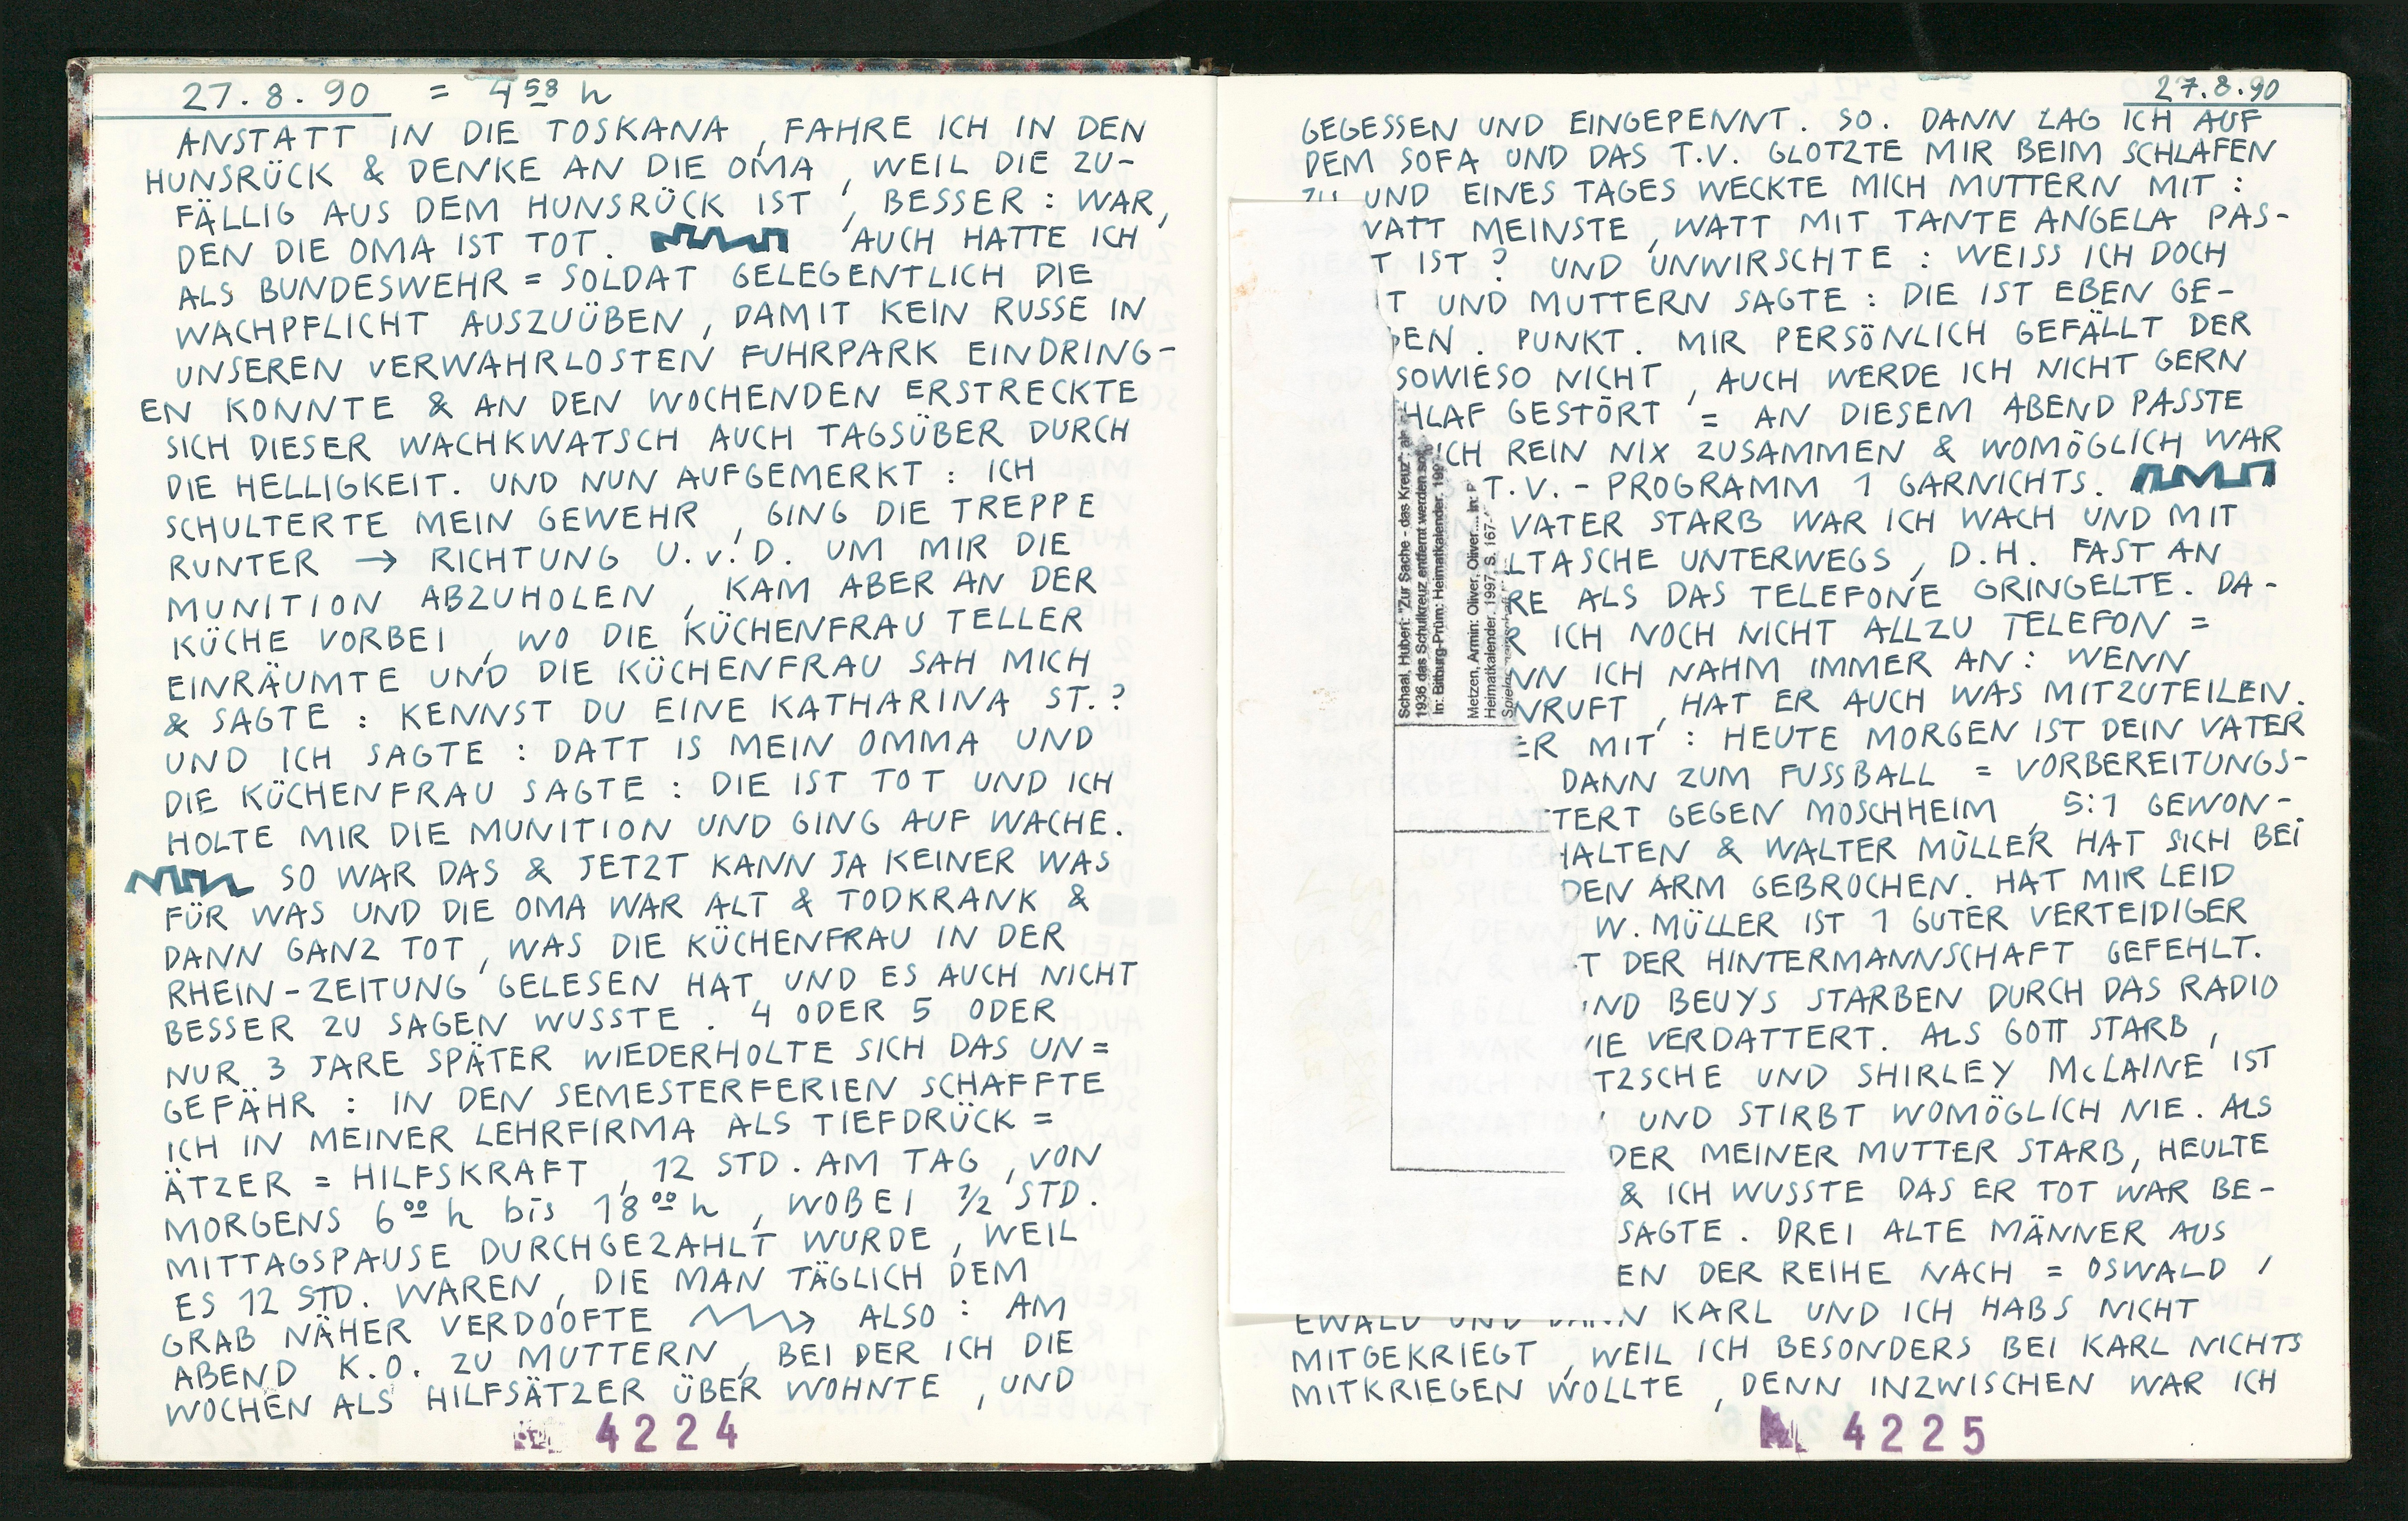 27.8.90 = 4 58 h
ANSTATT IN DIE TOSKANA, FAHRE ICH IN DEN
HUNSRÜCK & DENKE AN DIE OMA, WEIL DIE ZU-
FÄLLIG AUS DEM HUNSRÜCK IST, BESSER: WAR,
DEN DIE OMA IST TOT. AUCH HATTE ICH
ALS BUNDESWEHR = SOLDAT GELEGENTLICH DIE
WACHPFLICHT AUSZUÜBEN, DAMIT KEIN RUSSE IN
UNSEREN VERWAHRLOSTEN FUHRPARK EINDRING-
EN KONNTE & AN DEN WOCHENDEN ERSTRECKTE
SICH DIESER WACHKWATSCH AUCH TAGSÜBER DURCH
DIE HELLIGKEIT. UND NUN AUFGEMERKT: ICH
SCHULTERTE MEIN GEWEHR, GING DIE TREPPE
RUNTER → RICHTUNG U.v.D. UM MIR DIE
MUNITION ABZUHOLEN, KAM ABER AN DER
KÜCHE VORBEI, WO DIE KÜCHENFRAU TELLER
EINRÄUMTE UND DIE KÜCHENFRAU SAH MICH
& SAGTE: KENNST DU EINE KATHARINA ST.?
UND ICH SAGTE: DATT IS MEIN OMMA UND
DIE KÜCHENFRAU SAGTE: DIE IST TOT UND ICH
HOLTE MIR DIE MUNITION UND GING AUF WACHE.
SO WAR DAS & JETZT KANN JA KEINER WAS
FÜR WAS UND DIE OMA WAR ALT & TODKRANK &
DANN GANZ TOT, WAS DIE KÜCHENFRAU IN DER
RHEIN-ZEITUNG GELESEN HAT UND ES AUCH NICHT
BESSER ZU SAGEN WUSSTE. 4 ODER 5 ODER
NUR 3 JARE SPÄTER WIEDERHOLTE SICH DAS UN=
GEFÄHR: IN DEN SEMESTERFERIEN SCHAFFTE
ICH IN MEINER LEHRFIRMA ALS TIEFDRÜCK =
ÄTZER = HILFSKRAFT, 12 STD. AM TAG, VON
MORGENS 6 00 h bis 18 00 h, WOBEI 1/2 STD.
MITTAGSPAUSE DURCHGEZAHLT WURDE, WEIL
ES 12 STD. WAREN, DIE MAN TÄGLICH DEM
GRAB NÄHER VERDOOFTE ALSO: AM
ABEND K.O. ZU MUTTERN, BEI DER ICH DIE
WOCHEN ALS HILFSÄTZER ÜBER WOHNTE, UND
4224
27.8.90
GEGESSEN UND EINGEPENNT. SO. DANN LAG ICH AUF
DEM SOFA UND DAS T.V. GLOTZTE MIR BEIM SCHLAFEN
ZU UND EINES TAGES WECKTE MICH MUTTERN MIT:
WATT MEINSTE, WATT MIT TANTE ANGELA PAS-
T IST? UND UNWIRSCHTE: WEISS ICH DOCH
T UND MUTTERN SAGTE: DIE IST EBEN GE-
BEN. PUNKT. MIR PERSÖNLICH GEFÄLLT DER
SOWIESO NICHT, AUCH WERDE ICH NICHT GERN
HLAF GESTÖRT = AN DIESEM ABEND PASSTE
ICH REIN NIX ZUSAMMEN & WOMÖGLICH WAR
T.V.-PROGRAMM 1 GARNICHTS.
VATER STARB WAR ICH WACH UND MIT
LTASCHE UNTERWEGS, D.H. FAST AN
RE ALS DAS TELEFONE GRINGELTE. DA-
R ICH NOCH NICHT ALLZU TELEFON =
NN ICH NAHM IMMER AN: WENN
NRUFT, HAT ER AUCH WAS MITZUTEILEN.
ER MIT: HEUTE MORGEN IST DEIN VATER
DANN ZUM FUSSBALL = VORBEREITUNGS-
TTERT GEGEN MOSCHHEIM, 5:1 GEWON-
HALTEN & WALTER MÜLLER HAT SICH BEI
DEN ARM GEBROCHEN. HAT MIR LEID
W. MÜLLER IST 1 GUTER VERTEIDIGER
T DER HINTERMANNSCHAFT GEFEHLT.
UND BEUYS STARBEN DURCH DAS RADIO
WIE VERDATTERT. ALS GOTT STARB,
TZSCHE UND SHIRLEY McLAINE IST
UND STIRBT WOMÖGLICH NIE. ALS
DER MEINER MUTTER STARB, HEULTE
& ICH WUSSTE DAS ER TOT WAR BE-
SAGTE. DREI ALTE MÄNNER AUS
EN DER REIHE NACH = OSWALD,
EWALD UND DANN KARL UND ICH HABS NICHT
MITGEKRIEGT, WEIL ICH BESONDERS BEI KARL NICHTS
MITKRIEGEN WOLLTE, DENN INZWISCHEN WAR ICH
4225
Schaal, Hubert: "Zur Sache - das Kreuz" - als
1936 das Schulkreuz entfernt werden sollte.
In: Bitburg-Prüm: Heimatkalender. 199
Metzen, Armin: Oliver, Oliver... In: P
Heimatkalender. 1997, S. 167-